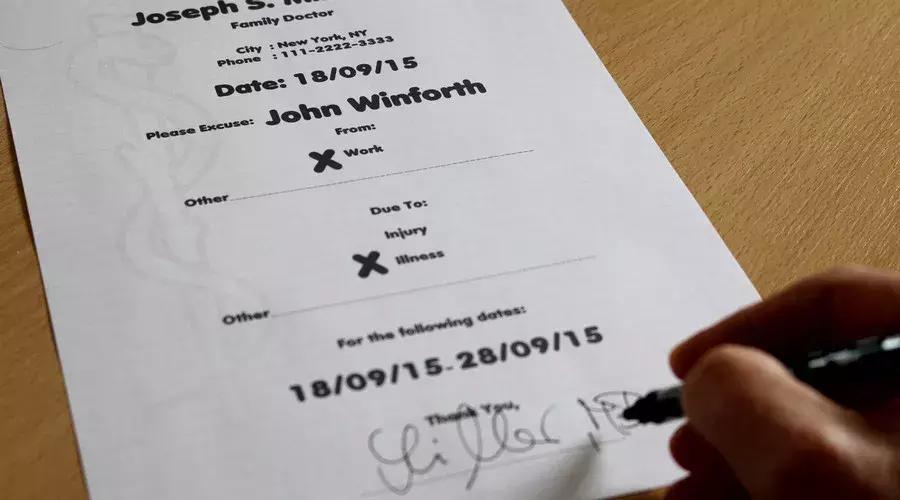 Joseph S.
Family Doctor
City : New York, NY
Phone : 111-2222-3333
Date: 18/09/15
Please Excuse: John Winforth
From:
X Work
Other
Due To:
Injury
X Illness
Other
For the following dates:
18/09/15-28/09/15
Thank You,
MD